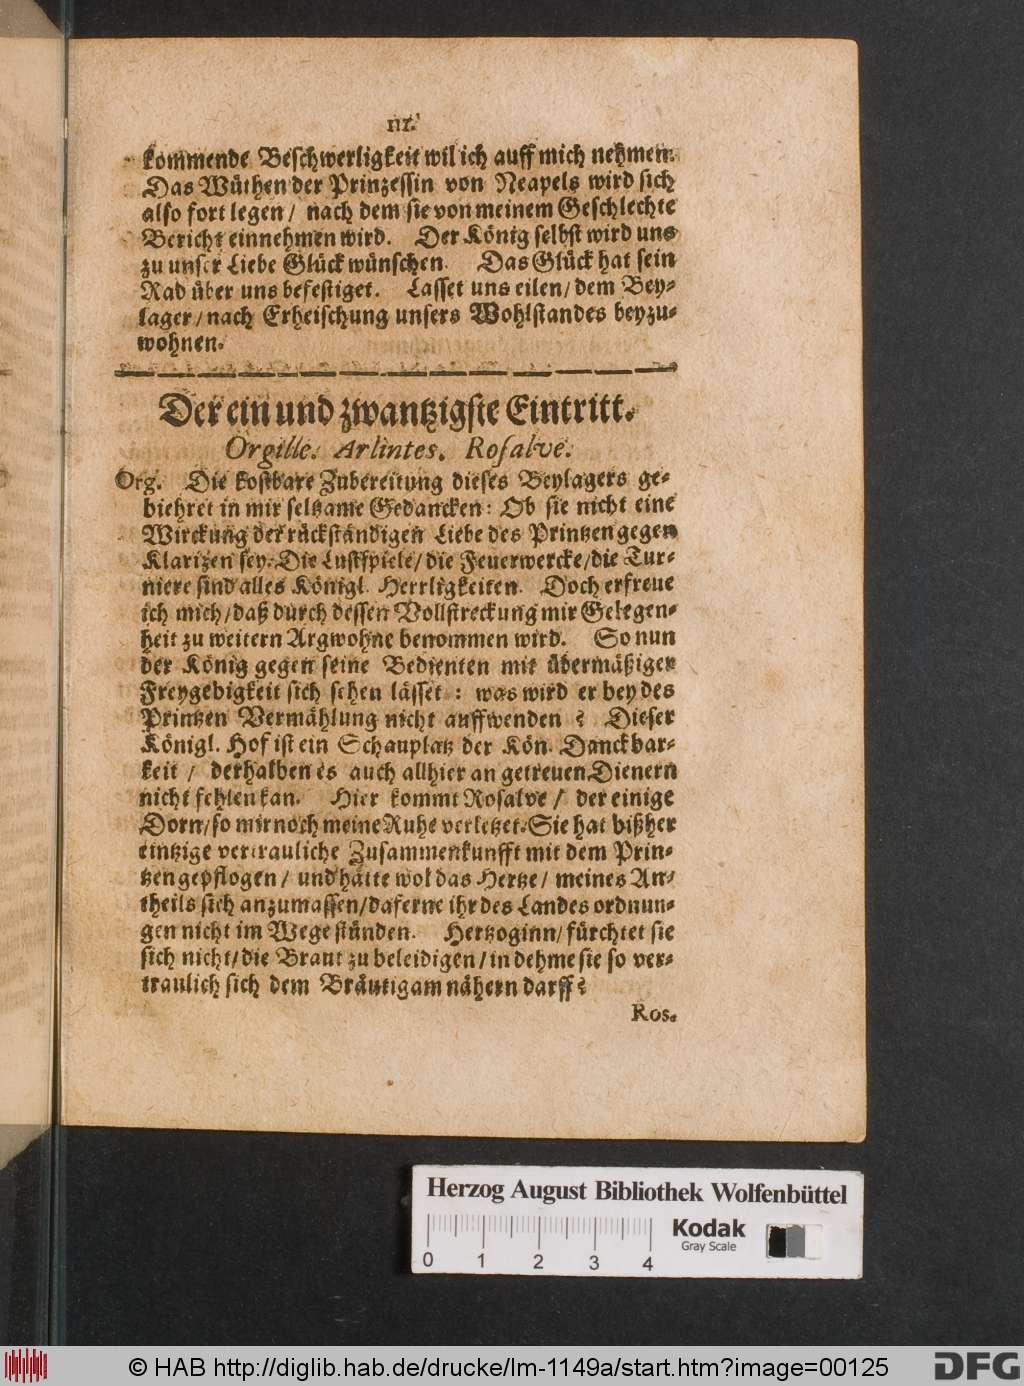 111.
kommende Beschwerligkeit wil ich auff mich nehmen.
Das Wüthen der Prinzessin von Neapels wird sich
also fort legen / nach dem sie von meinem Geschlechte
Bericht einnehmen wird. Der König selbst wird uns
zu unser Liebe Glück wünschen. Das Glück hat sein
Rad über uns befestiget. Lasset uns eilen / dem Bey-
lager / nach Erheischung unsers Wohlstandes beyzu-
wohnen.
Der ein und zwantzigste Eintritt.
Orgille. Arlintes. Rosalve.
Org. Die kostbare Zubereitung dieses Beylagers ge-
biehret in mir seltzame Gedancken: Ob sie nicht eine
Wirckung der rückständigen Liebe des Printzen gegen
Klarizen sey. Die Lustspiele / die Feuerwercke / die Tur-
niere sind alles Königl. Herrligkeiten. Doch erfreue
ich mich / daß durch dessen Vollstreckung mir Gelegen-
heit zu weitern Argwohne benommen wird. So nun
der König gegen seine Bedienten mit übermäßiger
Freygebigkeit sich sehen lässet : was wird er bey des
Printzen Vermählung nicht auffwenden ? Dieser
Königl. Hof ist ein Schauplatz der Kön. Danckbar-
keit / derhalben es auch allhier an getreuen Dienern
nicht fehlen kan. Hier kommt Rosalve / der einige
Dorn / so mir noch meine Ruhe verletzet. Sie hat bißher
eintzige vertrauliche Zusammenkunfft mit dem Prin-
tzen gepflogen / und hätte wol das Hertze / meines An-
theils sich anzumassen / daferne ihr des Landes ordnun-
gen nicht im Wege stünden. Hertzoginn / fürchtet sie
sich nicht / die Braut zu beleidigen / in dehme sie so ver-
traulich sich dem Bräutigam nähern darff ?
Ros.
Herzog August Bibliothek Wolfenbüttel
Kodak
Gray Scale
0 1 2 3 4
© HAB http://diglib.hab.de/drucke/lm-1149a/start.htm?image=00125
DFG